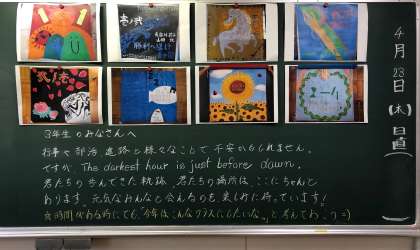 4月23日(木)日直
壱ノ弐
勝利へ導け
2-4
3年生のみなさんへ
行事や部活、進路と様々なことで不安かもしれません。
ですが、The darkest hour is just before dawn.
君たちの歩んできた軌跡、君たちの場所は、ここにちゃんと
あります。元気なみんなと会えるのを楽しみに待っています!
時間がある時にでも、今年はこんなクラスにしたいな。と考えてね。